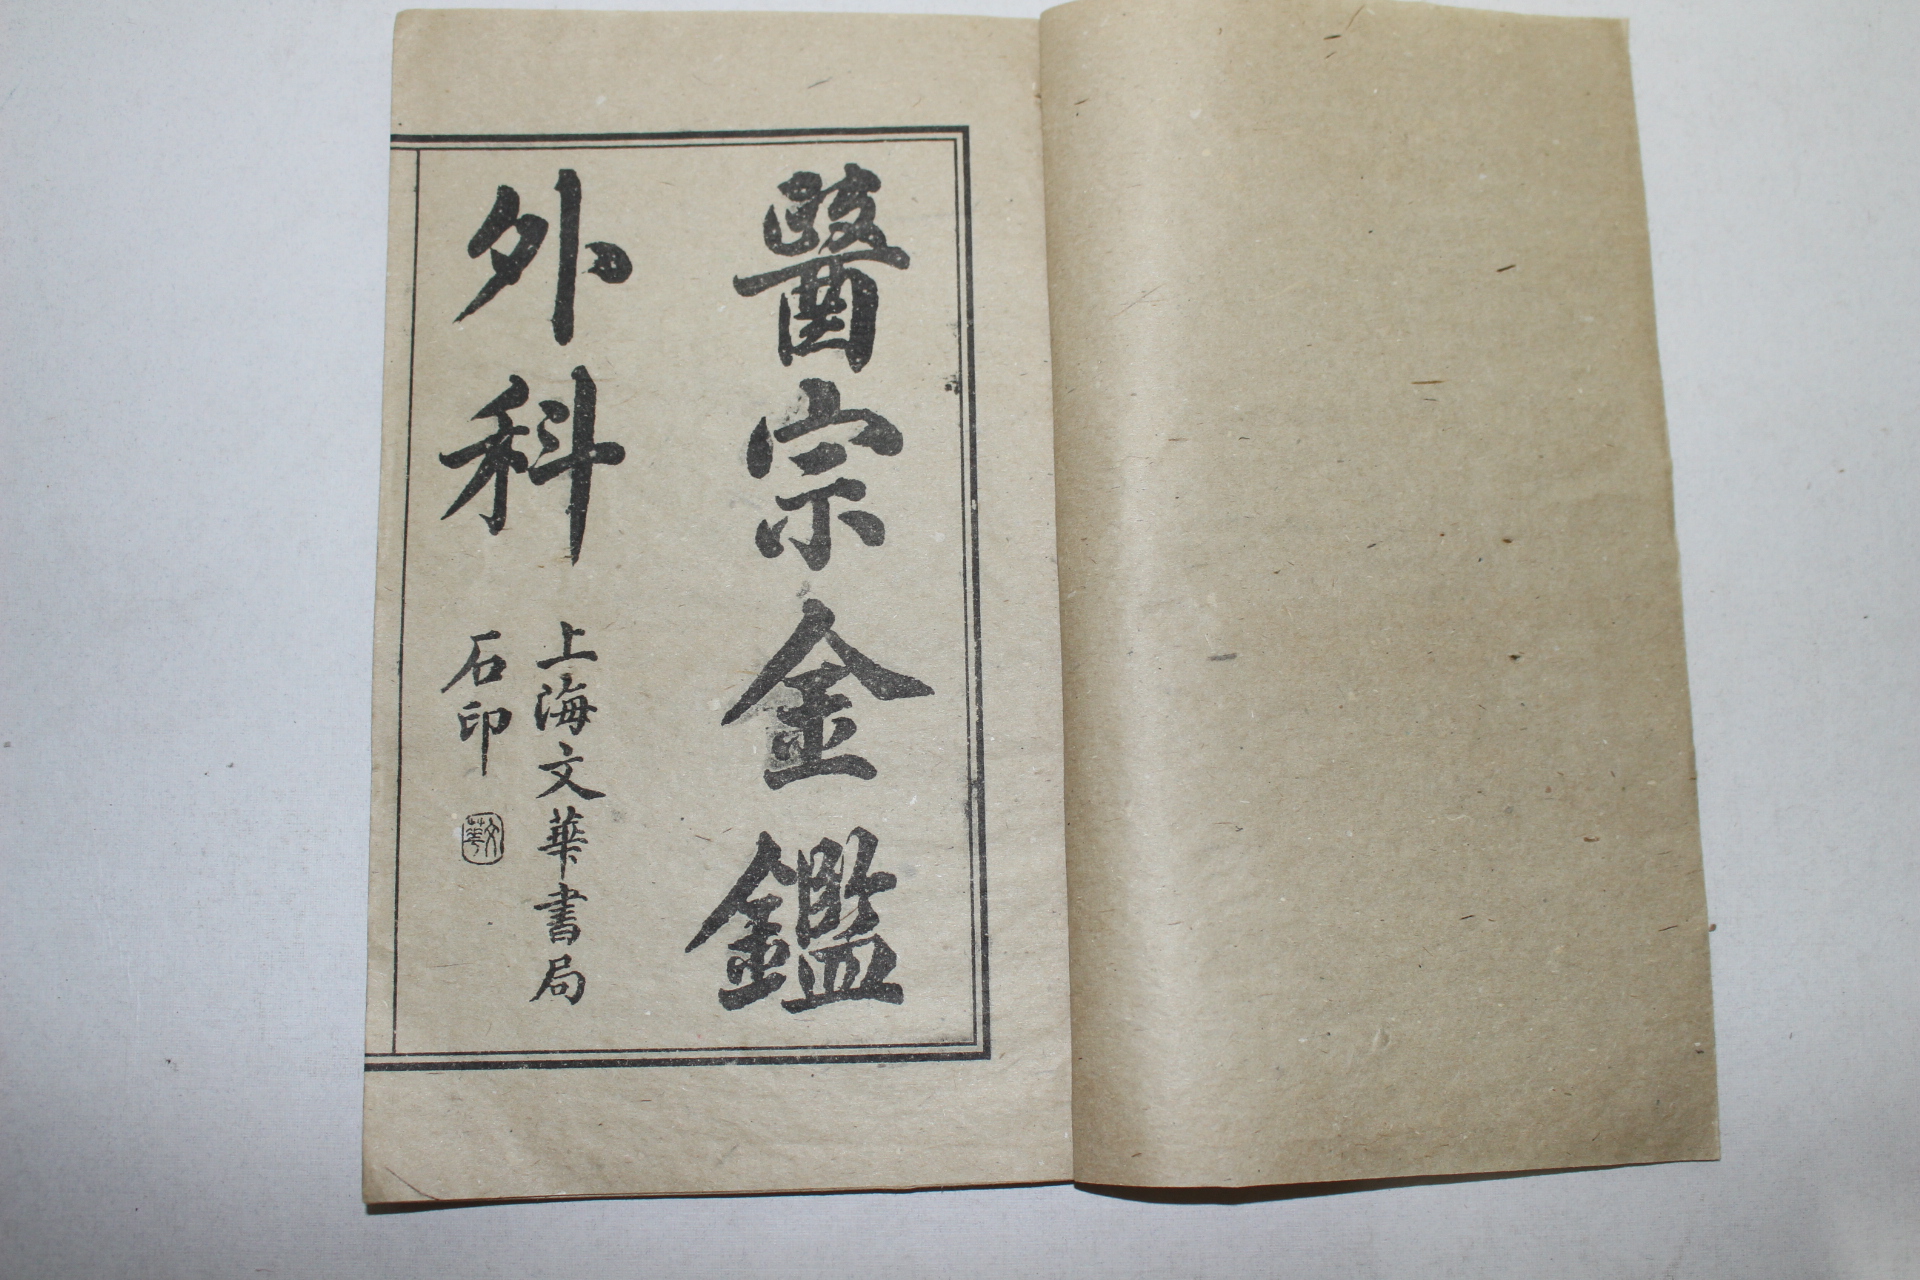 醫宗金鑑
外科
上海文華書局
石印
文華